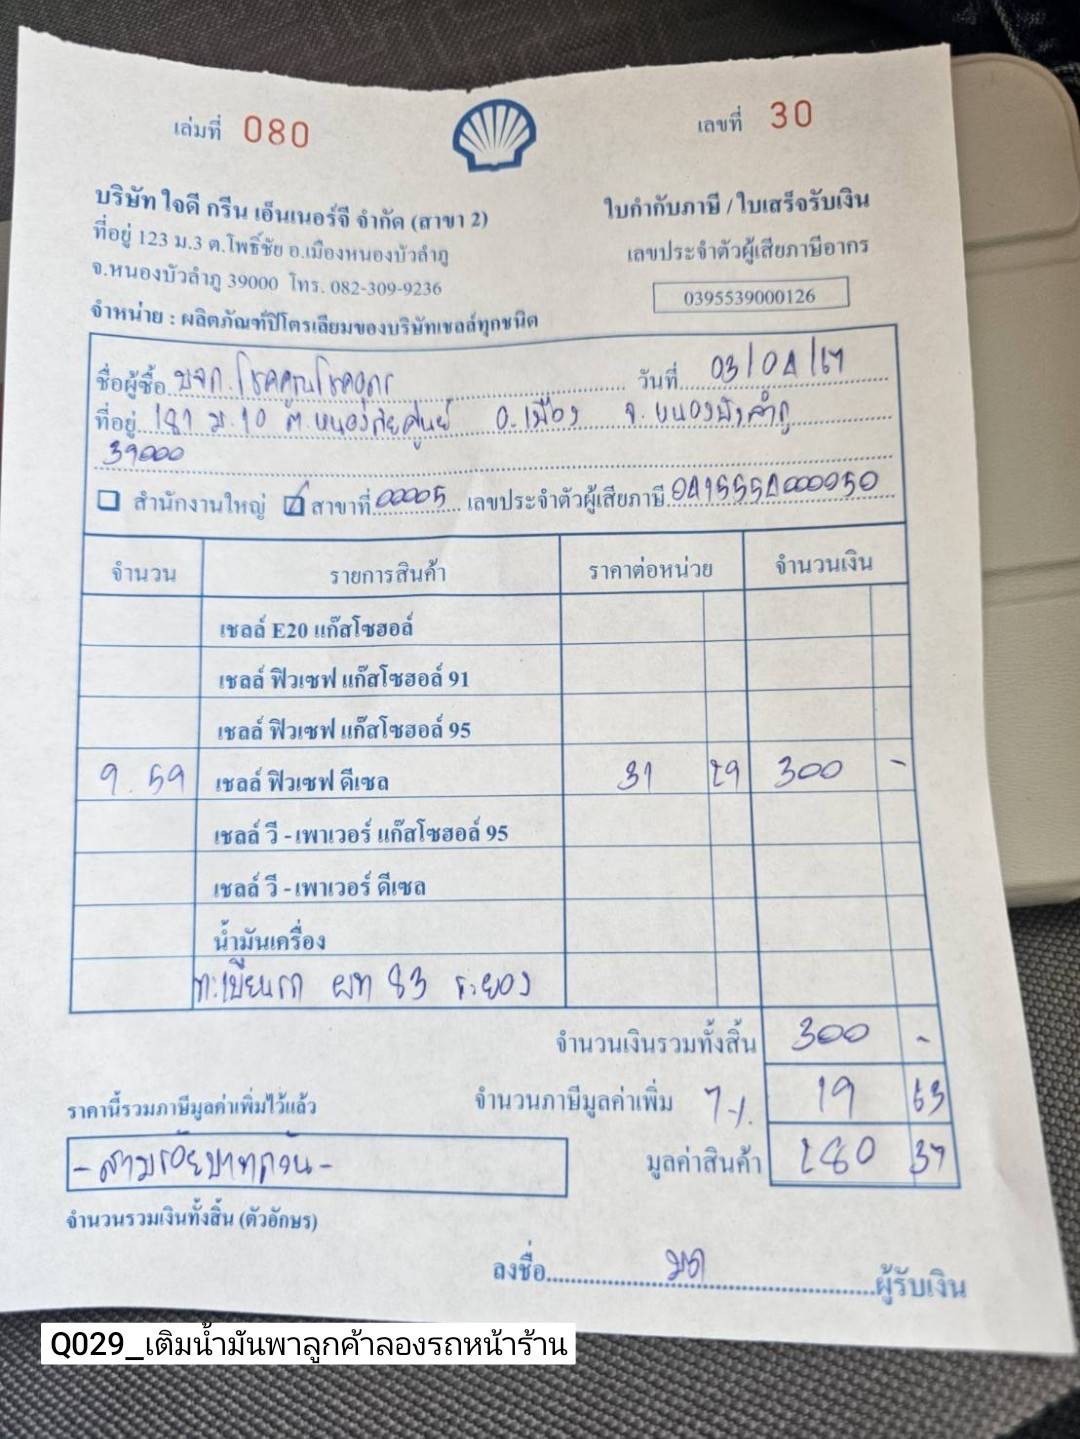 เล่มที่ 080
เลขที่ 30
บริษัท ใจดี กรีน เอ็นเนอร์จี จำกัด (สาขา 2)
ใบกำกับภาษี / ใบเสร็จรับเงิน
ที่อยู่ 123 ม.3 ต.โพธิ์ชัย อ.เมืองหนองบัวลำภู
เลขประจำตัวผู้เสียภาษีอากร
จ.หนองบัวลำภู 39000 โทร. 082-309-9236
0395539000126
จำหน่าย : ผลิตภัณฑ์ปิโตรเลียมของบริษัทเชลล์ทุกชนิด
ชื่อผู้ซื้อ บจก. วันที่ 03/04/67
ที่อยู่ 181 ม.10 ต. อ.เมือง จ.หนองบัวลำภู
39000
สำนักงานใหญ่ สาขาที่ 00005 เลขประจำตัวผู้เสียภาษี 0415554000050
จำนวน รายการสินค้า ราคาต่อหน่วย จำนวนเงิน
เชลล์ E20 แก๊สโซฮอล์
เชลล์ ฟิวเซฟ แก๊สโซฮอล์ 91
เชลล์ ฟิวเซฟ แก๊สโซฮอล์ 95
9.59 เชลล์ ฟิวเซฟ ดีเซล 31 29 300 -
เชลล์ วี - เพาเวอร์ แก๊สโซฮอล์ 95
เชลล์ วี - เพาเวอร์ ดีเซล
น้ำมันเครื่อง
ทะเบียนรถ ผท 83 ระยอง
จำนวนเงินรวมทั้งสิ้น 300 -
ราคานี้รวมภาษีมูลค่าเพิ่มไว้แล้ว จำนวนภาษีมูลค่าเพิ่ม 7% 19 63
- สามร้อยบาทถ้วน - มูลค่าสินค้า 280 37
จำนวนรวมเงินทั้งสิ้น (ตัวอักษร)
ลงชื่อ ผู้รับเงิน
Q029_เติมน้ำมันพาลูกค้าลองรถหน้าร้าน